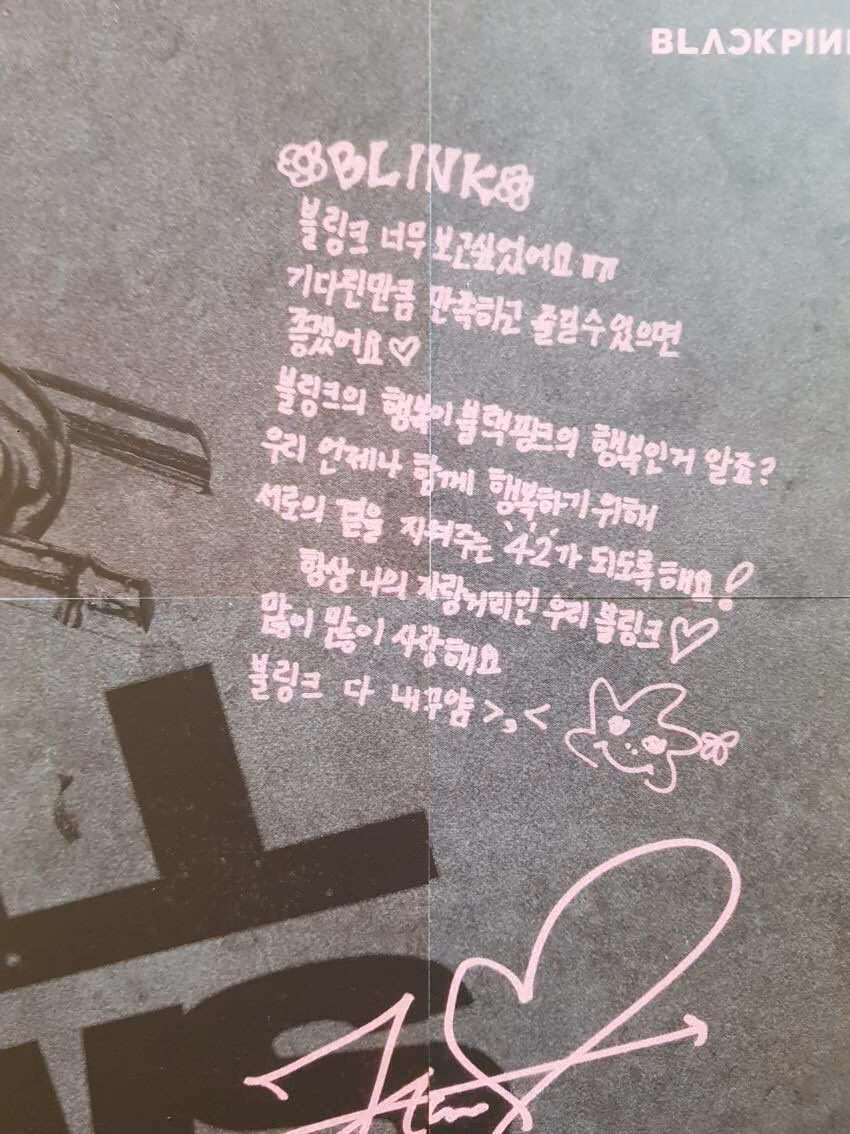 BLACKPIN
BLINK
블링크 너무 보고싶었어요 ㅠㅠ
기다린만큼 만족하고 즐길수있으면
좋겠어요♡
블링크의 행복이 블랙핑크의 행복인거 알죠?
우리 언제나 함께 행복하기위해
서로의 곁을 지켜주는 '42'가 되도록해요!
항상 나의 자랑거리인 우리 블링크♡
많이 많이 사랑해요
블링크 다 내꾸얌 >,<